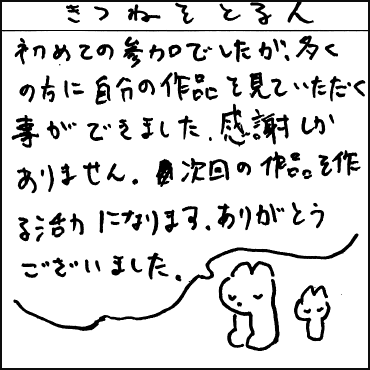 きつねそとるん
初めての参加でしたが、多く
の方に自分の作品を見ていただく
事ができました。感謝しか
ありません。次回の作品を作
る活力になります。ありがとう
ございました。